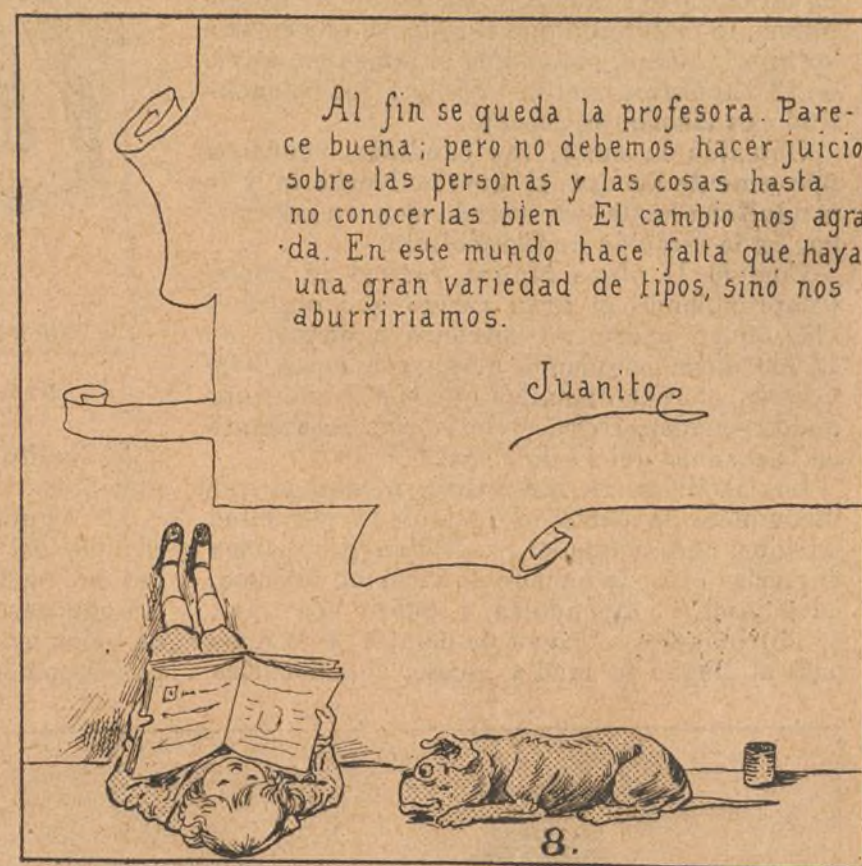 Al fin se queda la profesora. Pare-
ce buena; pero no debemos hacer juicio
sobre las personas y las cosas hasta
no conocerlas bien El cambio nos agra
da. En este mundo hace falta que haya
una gran variedad de tipos, sinó nos
aburririamos.
Juanito
8.